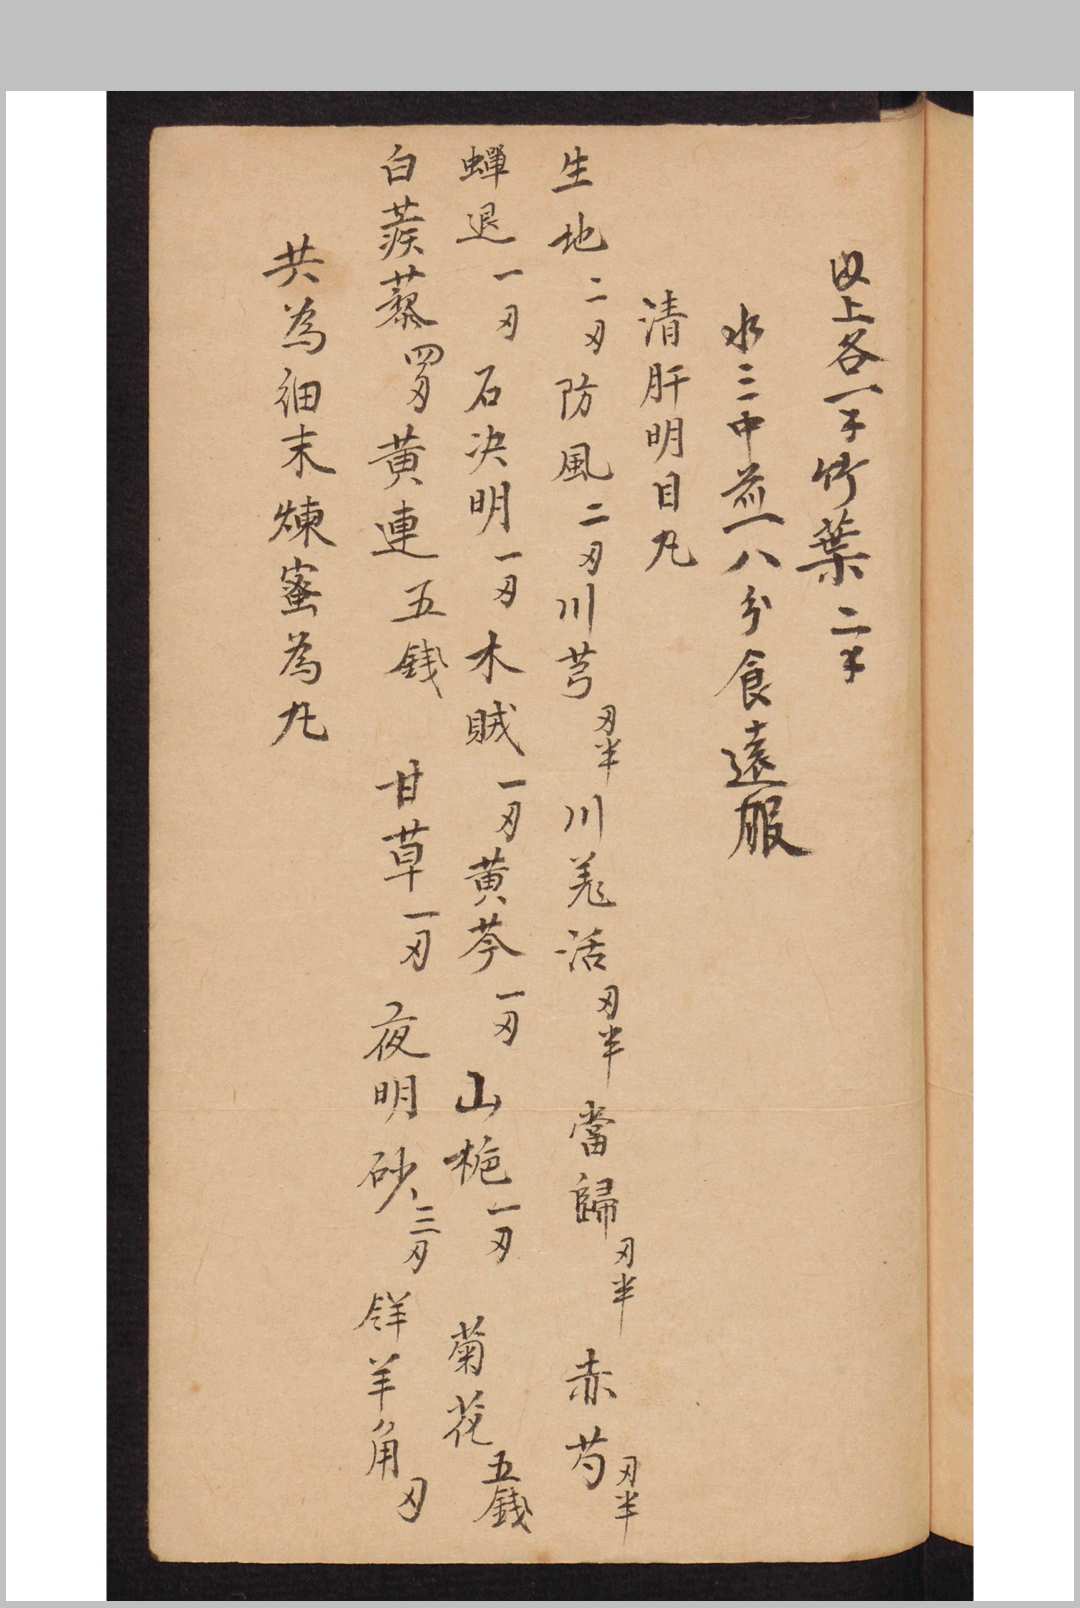 以上各一㐧竹葉二㐧
水三中煎一八分食遠服
清肝明目丸
生地二刄防風二刄川芎刄半川羗活刄半當歸刄半赤芍刄半
蟬退一刄石决明一刄木賊一刄黄芩一刄山梔一刄菊花五錢
白蒺藜四刄黄連五錢甘草一刄夜明砂三刄羊角刄
共為細末煉蜜為丸